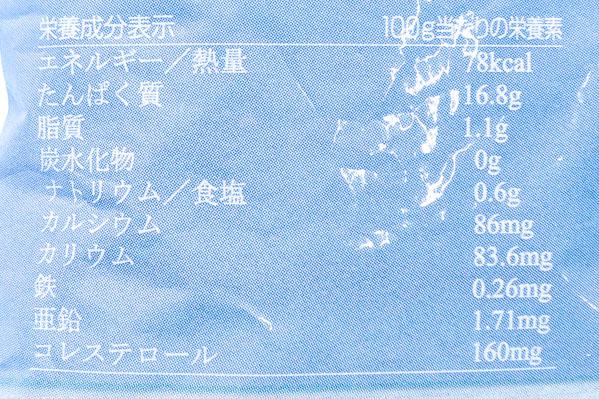 栄養成分表示 100g当たりの栄養素
エネルギー／熱量 78kcal
たんぱく質 16.8g
脂質 1.1g
炭水化物 0g
ナトリウム／食塩 0.6g
カルシウム 86mg
カリウム 83.6mg
鉄 0.26mg
亜鉛 1.71mg
コレステロール 160mg